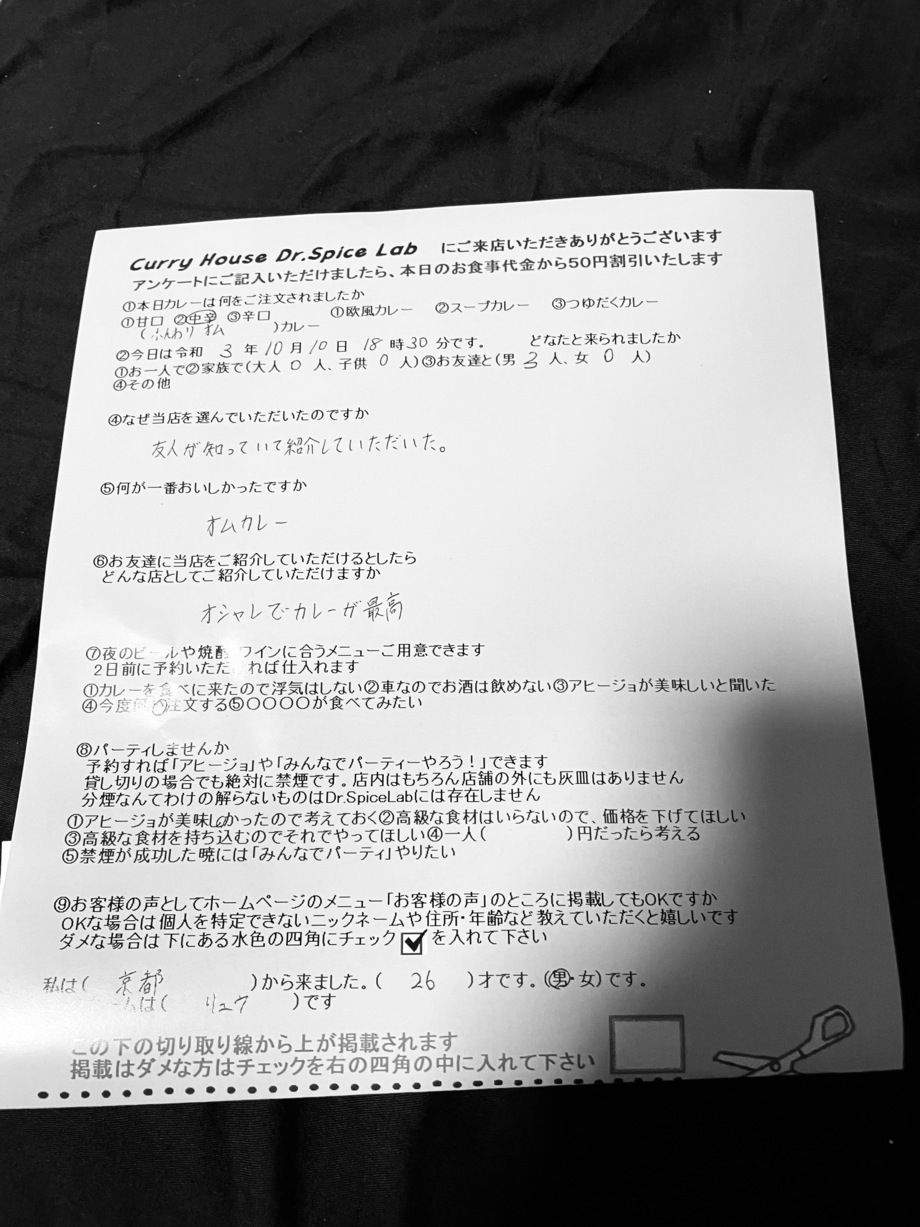 Curry House Dr.Spice Lab にご来店いただきありがとうございます
アンケートにご記入いただけましたら、本日のお食事代金から50円割引いたします
①本日カレーは何をご注文されましたか
①甘口 ②中辛 ③辛口 ①欧風カレー ②スープカレー ③つゆだくカレー
(ふんわり オム )カレー
②今日は令和 3 年 10 月 10 日 18 時 30 分です。 どなたと来られましたか
①お一人で②家族で(大人 0 人、子供 0 人)③お友達と(男 3 人、女 0 人)
④その他
④なぜ当店を選んでいただいたのですか
友人が知っていて紹介していただいた。
⑤何が一番おいしかったですか
オムカレー
⑥お友達に当店をご紹介していただけるとしたら
どんな店としてご紹介していただけますか
オシャレでカレーが最高
⑦夜のビールや焼酎 ワインに合うメニューご用意できます
2日前に予約いただければ仕入れます
①カレーを食べに来たので浮気はしない②車なのでお酒は飲めない③アヒージョが美味しいと聞いた
④今度何か注文する⑤〇〇〇〇が食べてみたい
⑧パーティしませんか
予約すれば「アヒージョ」や「みんなでパーティーやろう！」できます
貸し切りの場合でも絶対に禁煙です。店内はもちろん店舗の外にも灰皿はありません
分煙なんてわけの解らないものはDr.SpiceLabには存在しません
①アヒージョが美味しかったので考えておく②高級な食材はいらないので、価格を下げてほしい
③高級な食材を持ち込むのでそれでやってほしい④一人( )円だったら考える
⑤禁煙が成功した暁には「みんなでパーティ」やりたい
⑨お客様の声としてホームページのメニュー「お客様の声」のところに掲載してもOKですか
OKな場合は個人を特定できないニックネームや住所・年齢など教えていただくと嬉しいです
ダメな場合は下にある水色の四角にチェック を入れて下さい
私は( 京都 )から来ました。( 26 )才です。(男・女)です。
ームは( リュウ )です
この下の切り取り線から上が掲載されます
掲載はダメな方はチェックを右の四角の中に入れて下さい